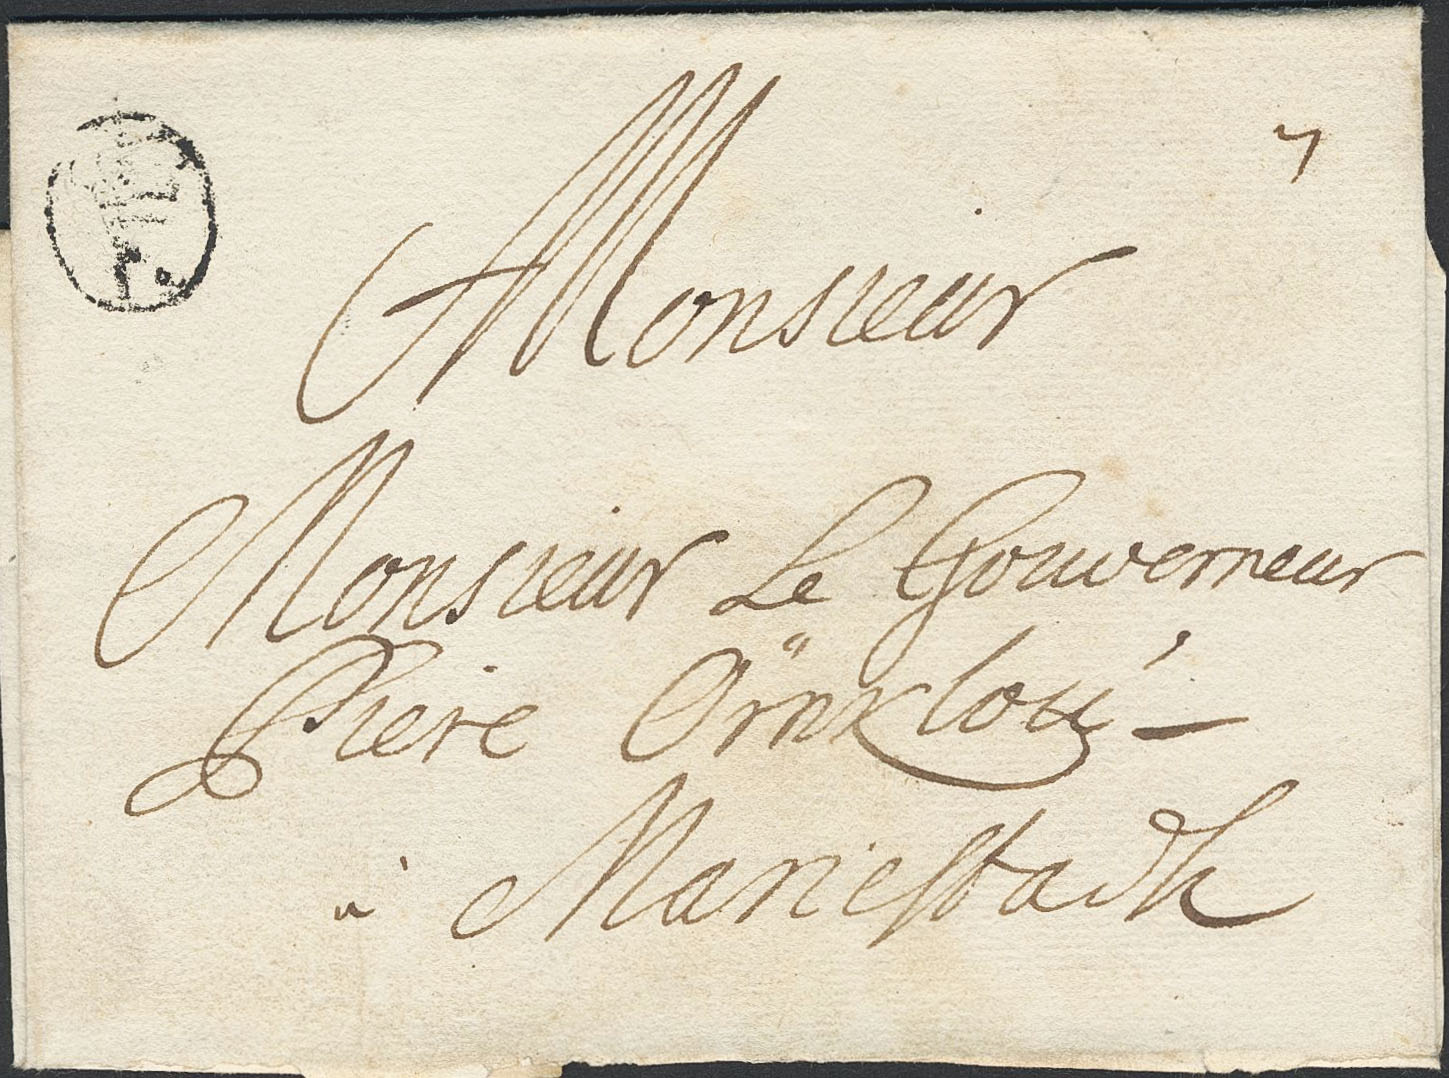 7
Monsieur
Monsieur Le Gouverneur
Piere Örnklou
à Mariestadh